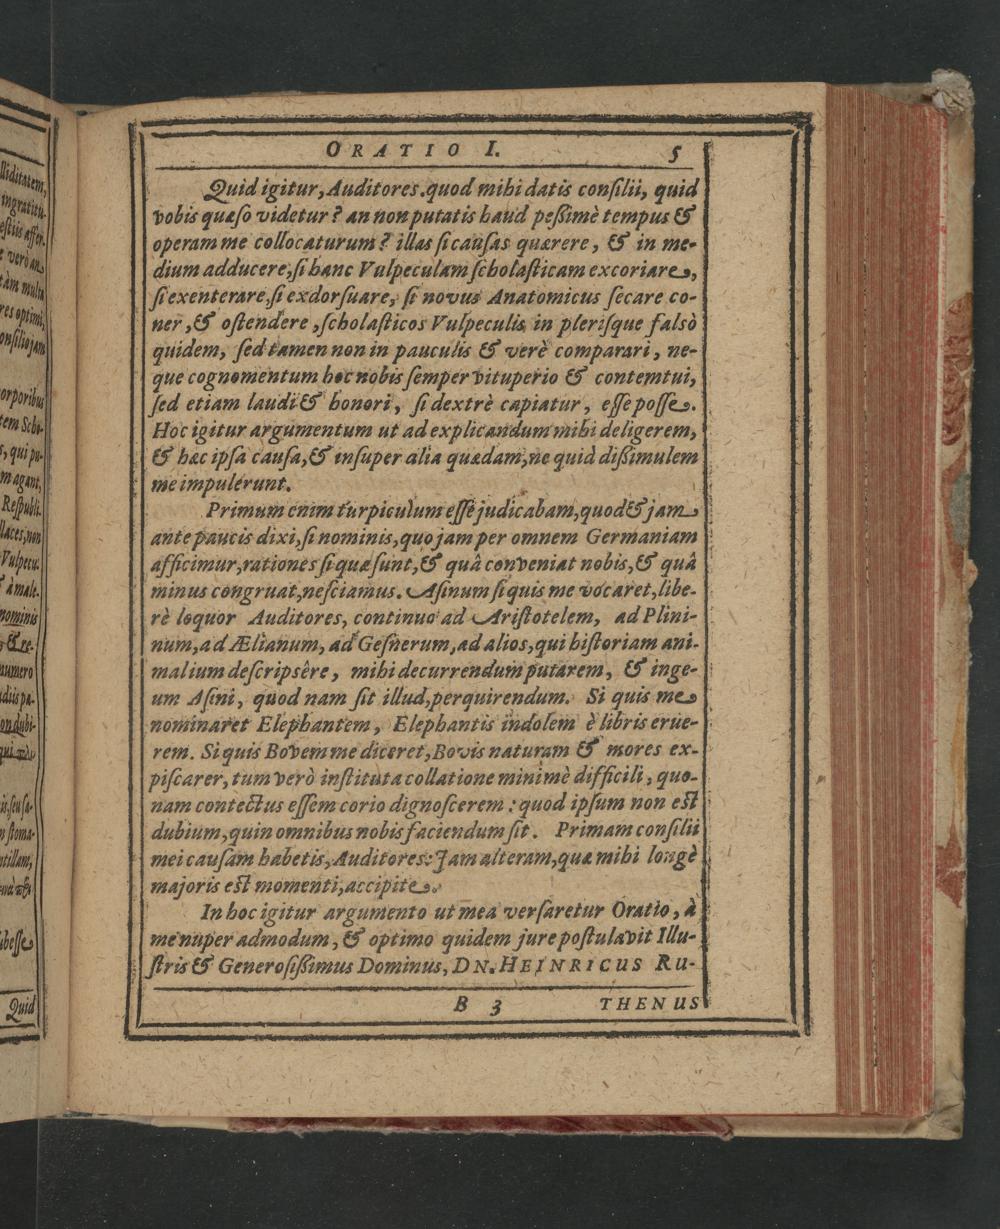 ORATIO I. 5
Quid igitur, Auditores. quod mihi datis conſilii, quid
vobis quæſo videtur? an non putatis haud peßimè tempus &
operam me collocaturum? illas ſi cauſas quærere, & in me-
dium adducere, ſi hanc Vulpeculam ſcholaſticam excoriare,
ſi exenterare, ſi exdorſuare, ſi novus Anatomicus ſecare co-
ner, & oſtendere, ſcholaſticos Vulpeculis in pleriſque falsò
quidem, ſed tamen non in pauculis & verè comparari, ne-
que cognomentum hoc nobis ſemper vituperio & contemtui,
ſed etiam laudi & honori, ſi dextrè capiatur, eſſe poſſe.
Hoc igitur argumentum ut ad explicandum mihi deligerem,
& hæc ipſa cauſa, & inſuper alia quædam, ne quid dißimulem
me impulerunt.
Primum enim turpiculum eſſe judicabam, quod & jam
ante paucis dixi, ſi nominis, quo jam per omnem Germaniam
afficimur, rationes ſi quæ ſunt, & quâ conveniat nobis, & quâ
minus congruat, neſciamus. Aſinum ſi quis me vocaret, libe-
rè loquor Auditores, continuò ad Ariſtotelem, ad Plini-
num, ad Ælianum, ad Geſnerum, ad alios, qui hiſtoriam ani-
malium deſcripsêre, mihi decurrendum putarem, & inge-
um Aſini, quod nam ſit illud, perquirendum. Si quis me
nominaret Elephantem, Elephantis indolem è libris erue-
rem. Si quis Bovem me diceret, Bovis naturam & mores ex-
piſcarer, tum verò inſtituta collatione minimè difficili, quo-
nam contectus eſſem corio dignoſcerem: quod ipſum non eſt
dubium, quin omnibus nobis faciendum ſit. Primam conſilii
mei cauſam habetis, Auditores: Jam alteram, quæ mihi longè
majoris eſt momenti, accipite.
In hoc igitur argumento ut mea verſaretur Oratio, à
me nuper admodum, & optimo quidem jure poſtulavit Illu-
ſtris & Generoſißimus Dominus, DN. HEINRICUS RU-
B 3 THENUS